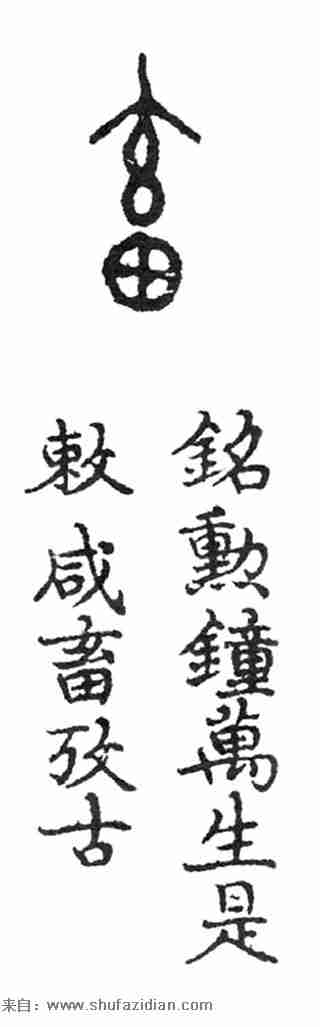 畜
銘勳鐘萬生是
敕咸畜攷古
来自：www.shufazidian.com